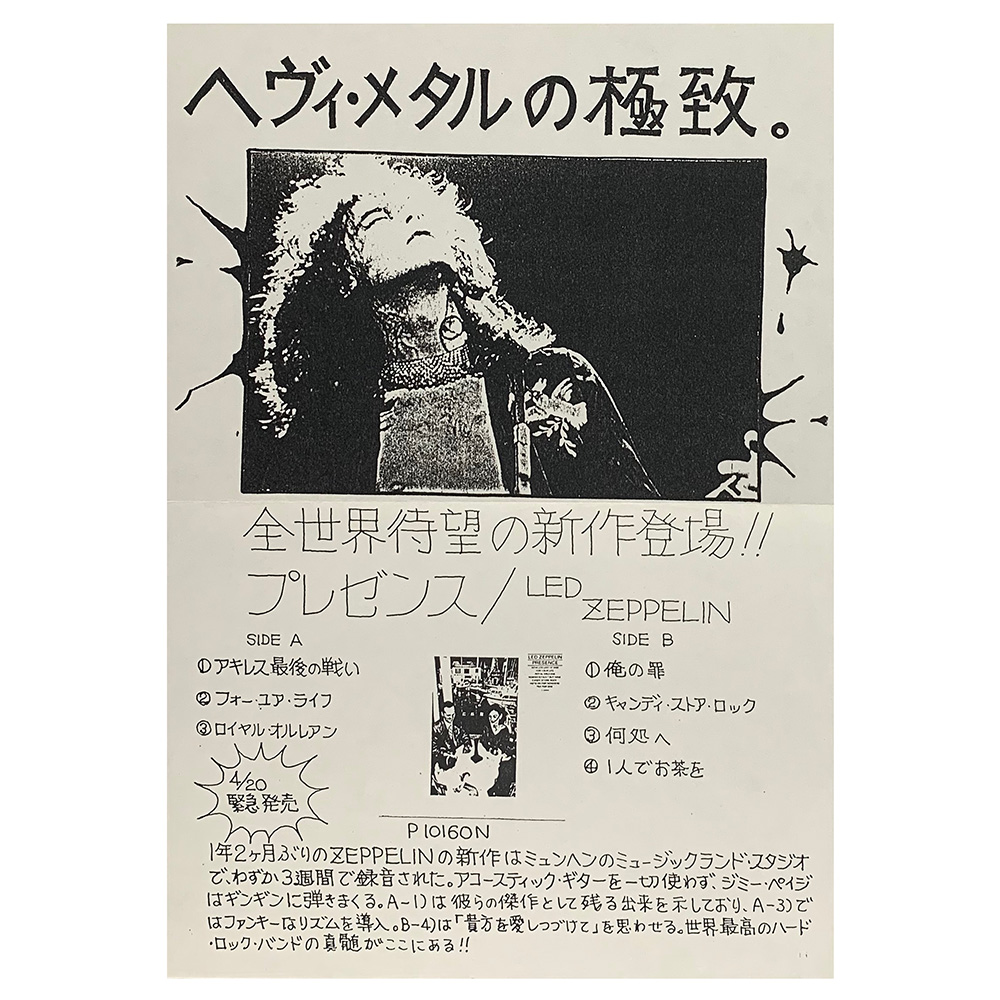 ヘヴィ・メタルの極致。
全世界待望の新作登場!!
プレゼンス/LED ZEPPELIN
SIDE A
①アキレス最後の戦い
②フォー・ユア・ライフ
③ロイヤル・オルレアン
4/20
緊急発売
LED ZEPPELIN
PRESENCE
SIDE B
①俺の罪
②キャンディ・ストア・ロック
③何処へ
④1人でお茶を
P10160N
1年2ヶ月ぶりのZEPPELINの新作はミュンヘンのミュージックランド・スタジオ
で、わずか3週間で録音された。アコースティック・ギターを一切使わず、ジミー・ペイジ
はギンギンに弾きまくる。A-1)は彼らの傑作として残る出来を示しており、A-3)で
はファンキーなリズムを導入。B-4)は「貴方を愛しつづけて」を思わせる。世界最高のハード
・ロック・バンドの真髄がここにある!!